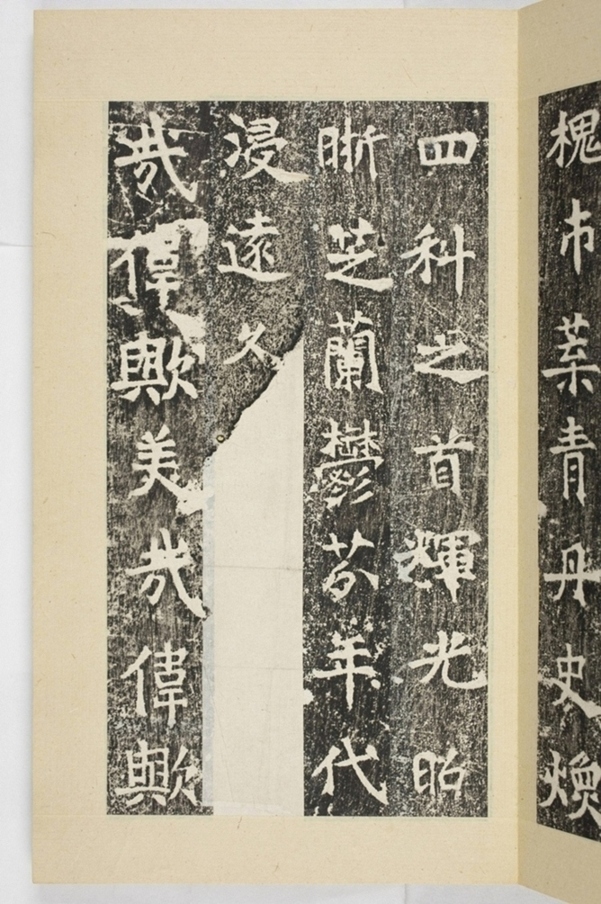 槐市葉青丹史煥
四科之首輝光昭
晣芝蘭鬱芬年代
浸遠久
哉偉歟美哉偉歟